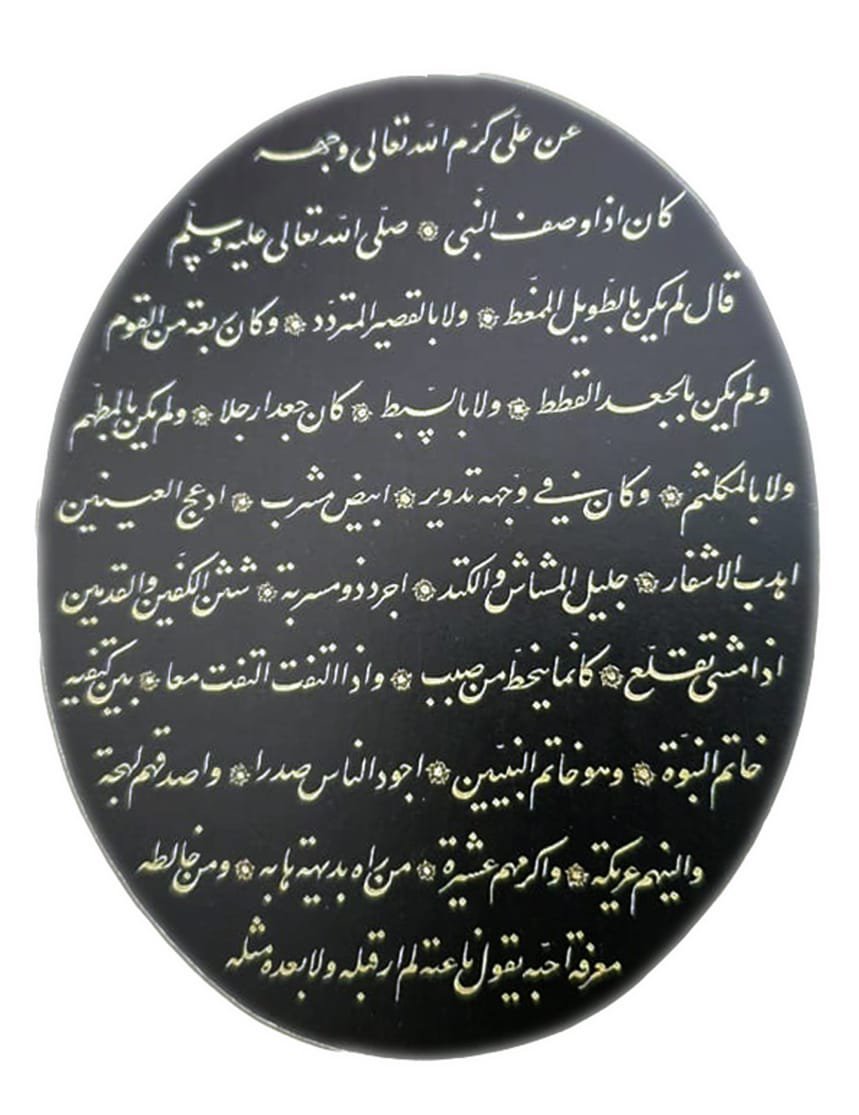 عن علّى كرّم الله تعالى وجهه
كان اذا وصف النّبى ۞ صلّى الله تعالى عليه وسلّم
قال لم يكن بالطّويل الممّغط ۞ ولا بالقصير المتردّد ۞ وكان ربعة من القوم
ولم يكن بالجعد القطط ۞ ولا بالسّبط ۞ كان جعدا رجلا ۞ ولم يكن بالمطّهم
ولا بالمكلثم ۞ وكان فى وجهه تدوير ۞ ابيض مشرب ۞ ادعج العينين
اهدب الاشفار ۞ جليل المشاش والكتد ۞ اجرد ذو مسربة ۞ شثن الكفّين والقدمين
اذا مشى تقلّع ۞ كانّما ينحطّ من صبب ۞ واذا التفت التفت معا ۞ بين كتفيه
خاتم النبوّة ۞ وهو خاتم النّبيّين ۞ اجود الناس صدرا ۞ واصدقهم لهجة
والينهم عريكة ۞ واكرمهم عشيرة ۞ من راه بديهة هابه ۞ ومن خالطه
معرفة احبّه يقول ناعته لم ار قبله ولا بعده مثله